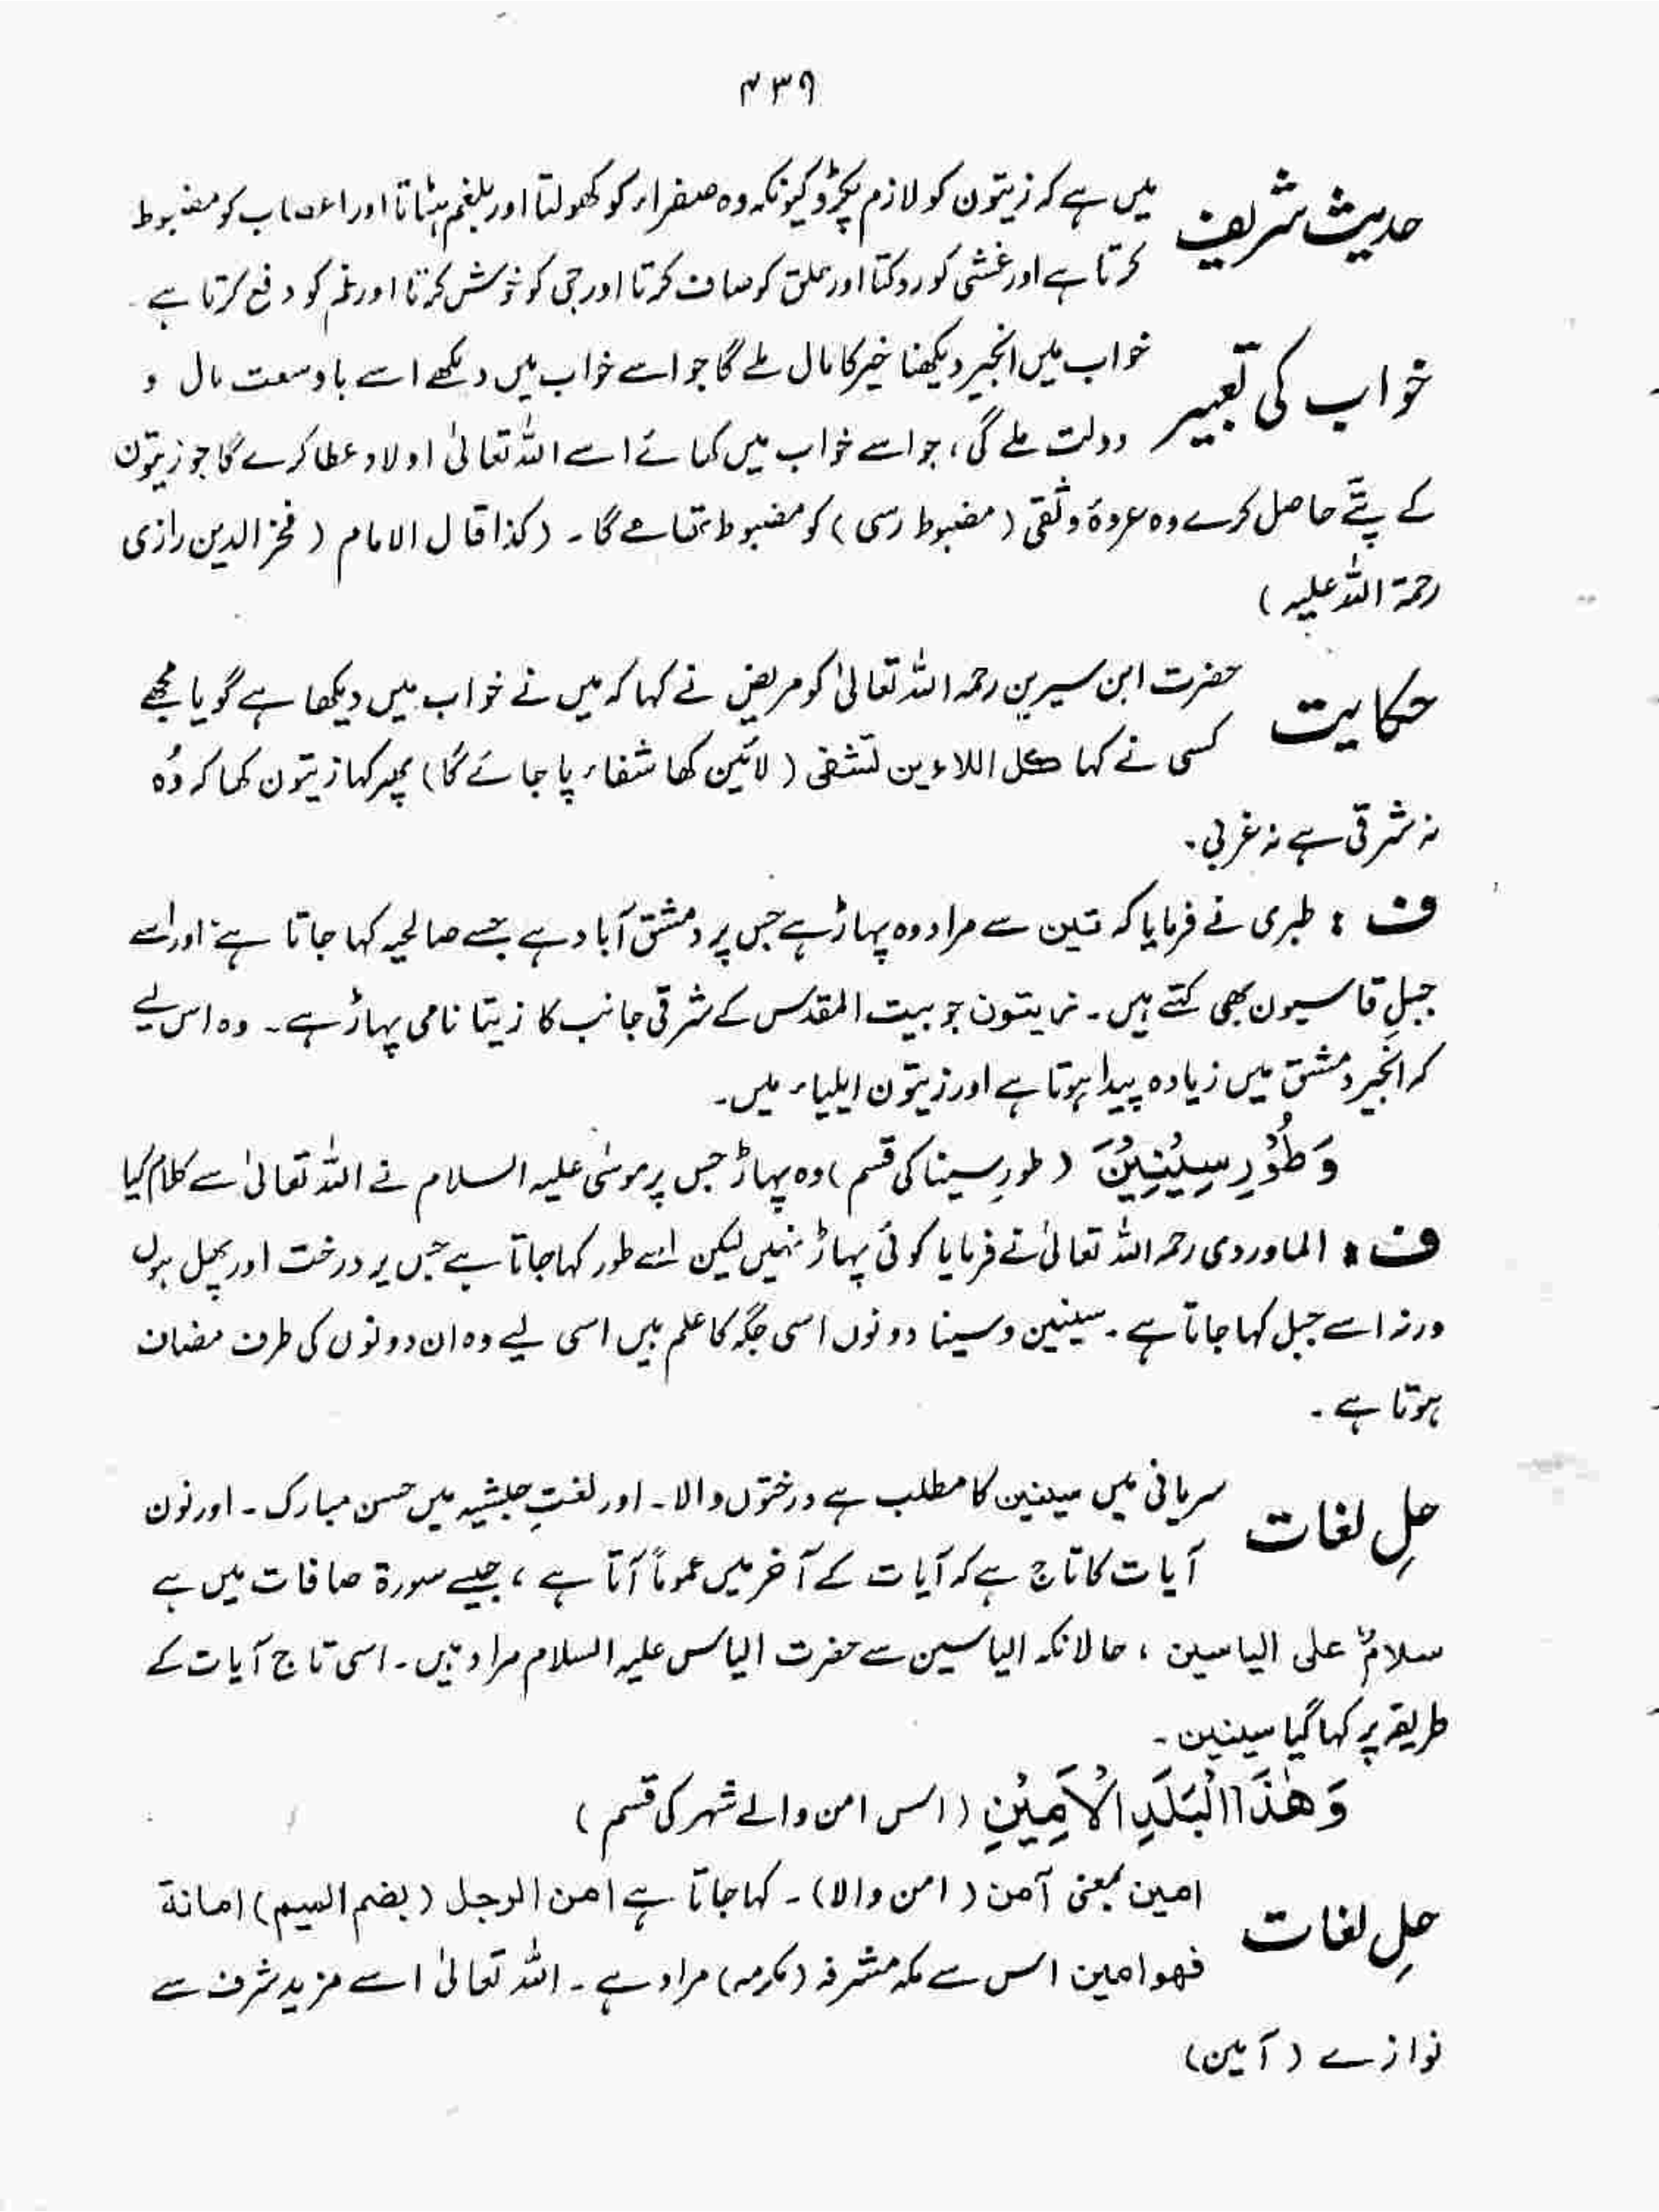 ۴۳۹
حدیث شریف میں ہے کہ زیتون کو لازم پکڑو کیونکہ وہ صفراء کو کھولتا اور بلغم ہٹاتا اور اعصاب کو مضبوط
کرتا ہے اور غشی کو روکتا اور خلق کو صاف کرتا اور جی کو خوش کرتا اور غم کو دفع کرتا ہے۔
خواب کی تعبیر خواب میں انجیر دیکھنا خیر کا مال ملے گا جو اسے خواب میں دیکھے اسے باوسعت مال و
دولت ملے گی، جو اسے خواب میں کھائے اسے اللہ تعالیٰ اولاد عطا کرے گا جو زیتون
کے پتّے حاصل کرے وہ عروۂ وثقی (مضبوط رسی) کو مضبوط تھامے گا۔ (کذا قال الامام (فخر الدین رازی
رحمۃ اللہ علیہ)
حکایت حضرت ابن سیرین رحمہ اللہ تعالیٰ کو مریض نے کہا کہ میں نے خواب میں دیکھا ہے گویا مجھے
کسی نے کہا کل اللاءین تشفی (لائین کھا شفاء پا جائے گا) پھر کہا زیتون کھا کر وُہ
نہ شرقی ہے نہ غربی۔
ف : طبری نے فرمایا کہ تین سے مراد وہ پہاڑ ہے جس پر دمشق آباد ہے جسے صالحیہ کہا جاتا ہے اور اسے
جبلِ قاسیون بھی کہتے ہیں۔ زیتون جو بیت المقدس کے شرقی جانب کا زیتا نامی پہاڑ ہے۔ وہ اس لیے
کہ انجیر دمشق میں زیادہ پیدا ہوتا ہے اور زیتون ایلیاء میں۔
وَطُوْرِ سِیْنِیْنَ (طورِ سینا کی قسم) وہ پہاڑ جس پر موسٰی علیہ السلام نے اللہ تعالیٰ سے کلام کیا
ف : الماوردی رحمہ اللہ تعالیٰ نے فرمایا کوئی پہاڑ نہیں لیکن اسے طور کہا جاتا ہے جس پر درخت اور پھل ہوں
ورنہ اسے جبل کہا جاتا ہے۔ سینین و سینا دونوں اسی جگہ کا علم ہیں اسی لیے وہ ان دونوں کی طرف مضاف
ہوتا ہے۔
حلِ لغات سریانی میں سینین کا مطلب ہے درختوں والا۔ اور لغتِ حبشیہ میں حسن مبارک۔ اور نون
آیات کا تاج ہے کہ آیات کے آخر میں عموماً آتا ہے، جیسے سورۃ صافات میں ہے
سلامٌ علی الیاسین، حالانکہ الیاسین سے حضرت الیاس علیہ السلام مراد ہیں۔ اسی تاج آیات کے
طریقہ پر کہا گیا سینین۔
وَهٰذَا الْبَلَدِ الْاَمِیْنِ (اس امن والے شہر کی قسم)
حلِ لغات امین بمعنی آمن (امن والا)۔ کہا جاتا ہے امن الرجل (بضم المیم) امانة
فهو امین اس سے مکہ مشرفہ (مکرمہ) مراد ہے۔ اللہ تعالیٰ اسے مزید شرف سے
نوازے (آمین)